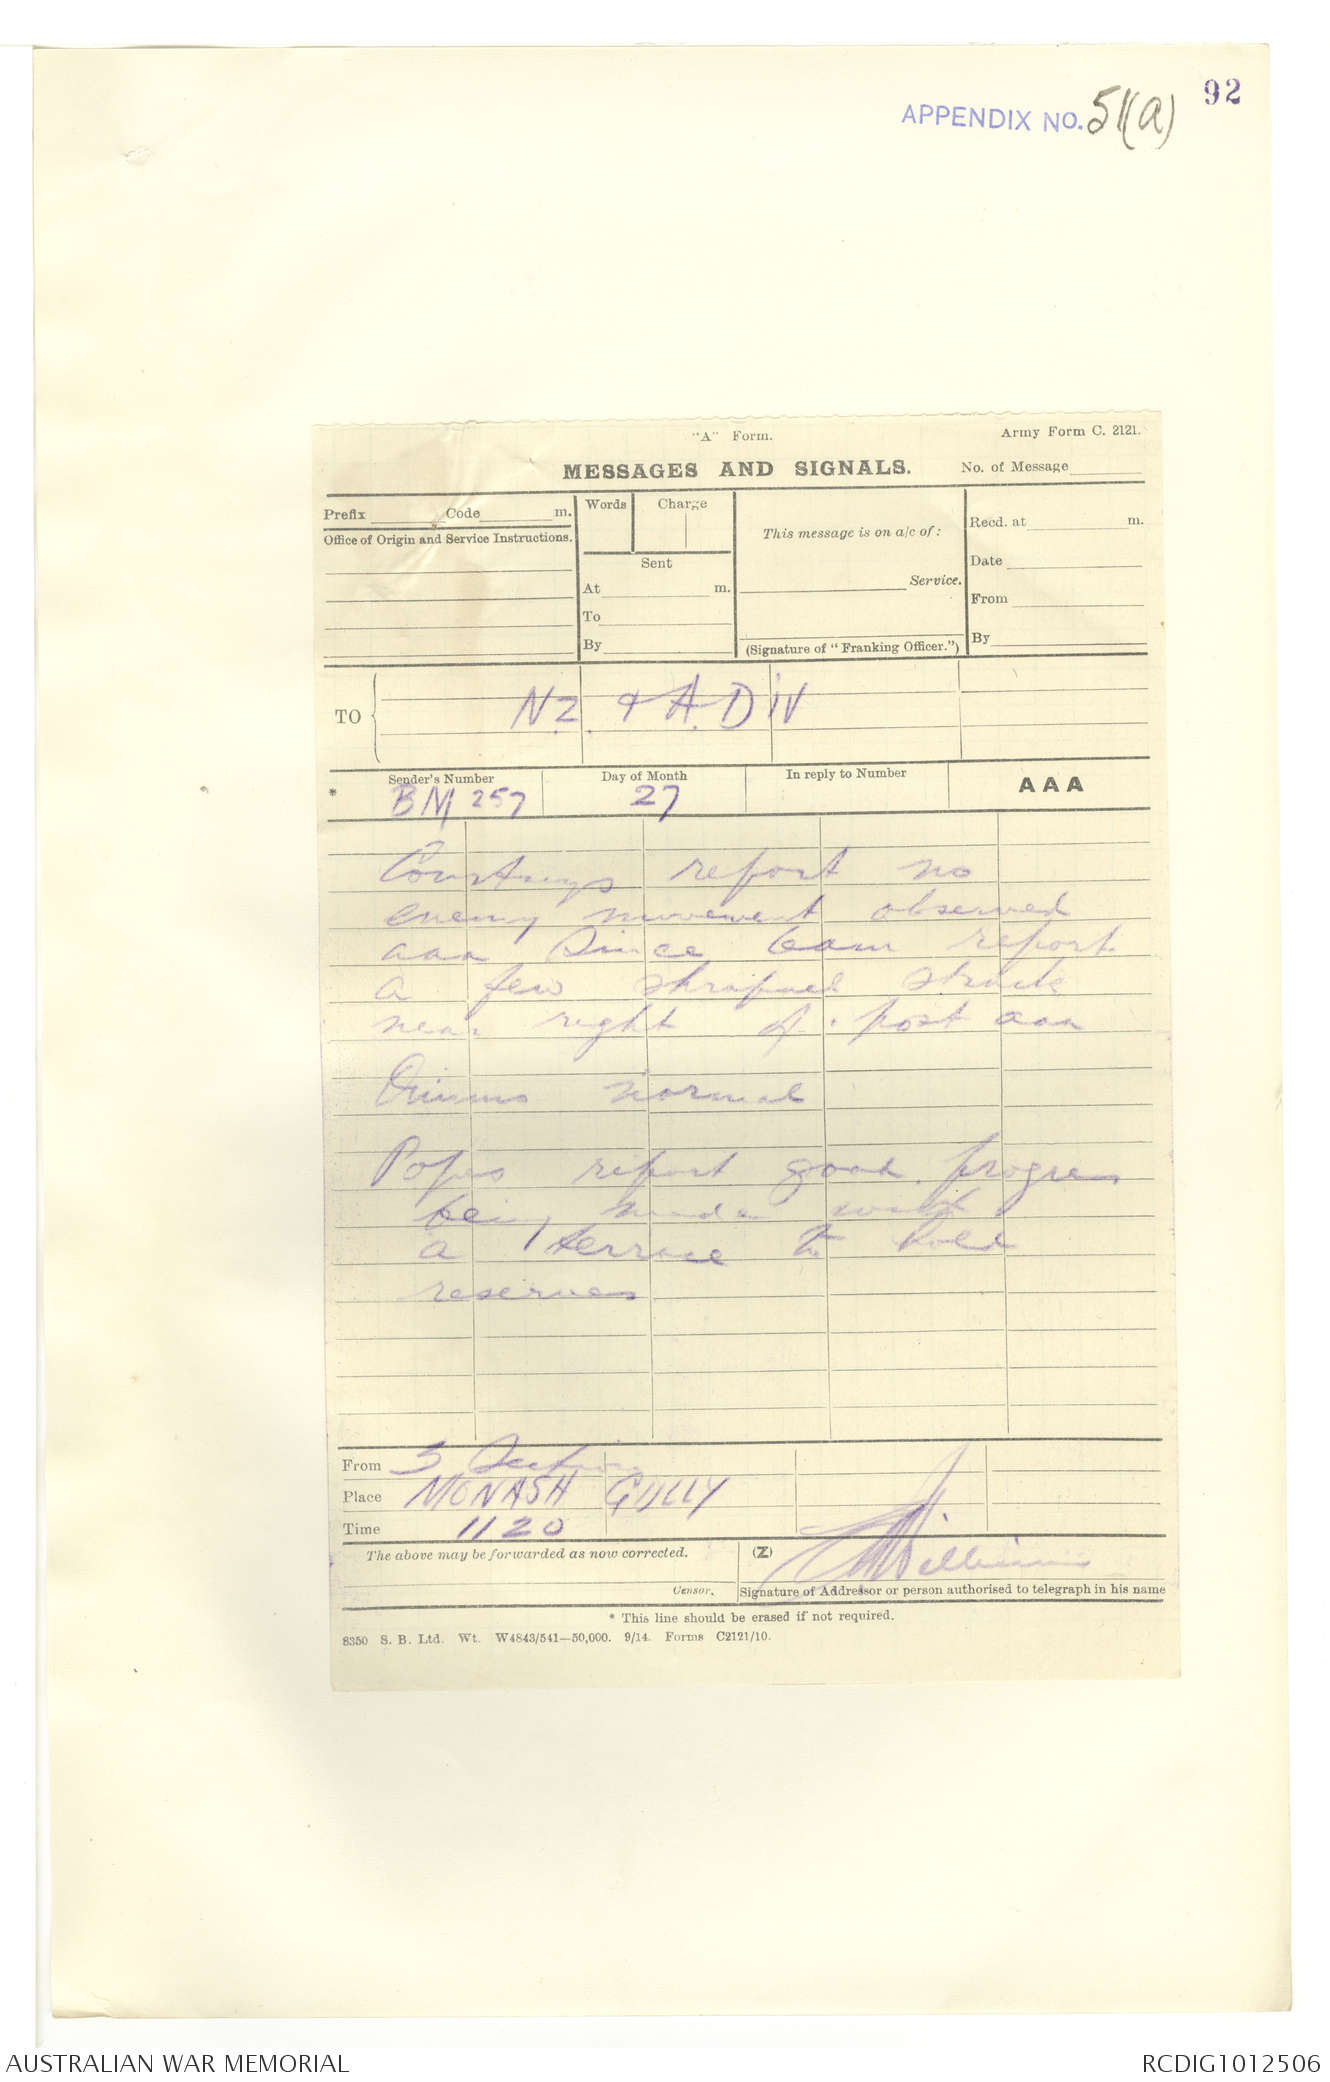 92
APPENDIX NO. 51(a)
"A" Form.
Army Form C. 2121.
MESSAGES AND SIGNALS.
No. of Message
Prefix Code m.
Words Charge
This message is on a/c of:
Recd. at m.
Office of Origin and Service Instructions.
Sent
Date
At m.
Service.
From
To
By
(Signature of "Franking Officer.")
By
TO
N.Z. & A. DIV
Sender's Number
Day of Month
In reply to Number
AAA
* BM 257
27
Courtneys report no
enemy movement observed
aaa Since 6am report
a few shrapnel struck
near right of post aaa
Quinns normal
Popes report good progress
being made with
a terrace to hold
reserves
From 3 Section
Place MONASH GULLY
Time 1120
The above may be forwarded as now corrected.
(Z)
Censor.
Signature of Addressor or person authorised to telegraph in his name
* This line should be erased if not required.
8350 S. B. Ltd. Wt. W4843/541—50,000. 9/14. Forms C2121/10.
AUSTRALIAN WAR MEMORIAL
RCDIG1012506